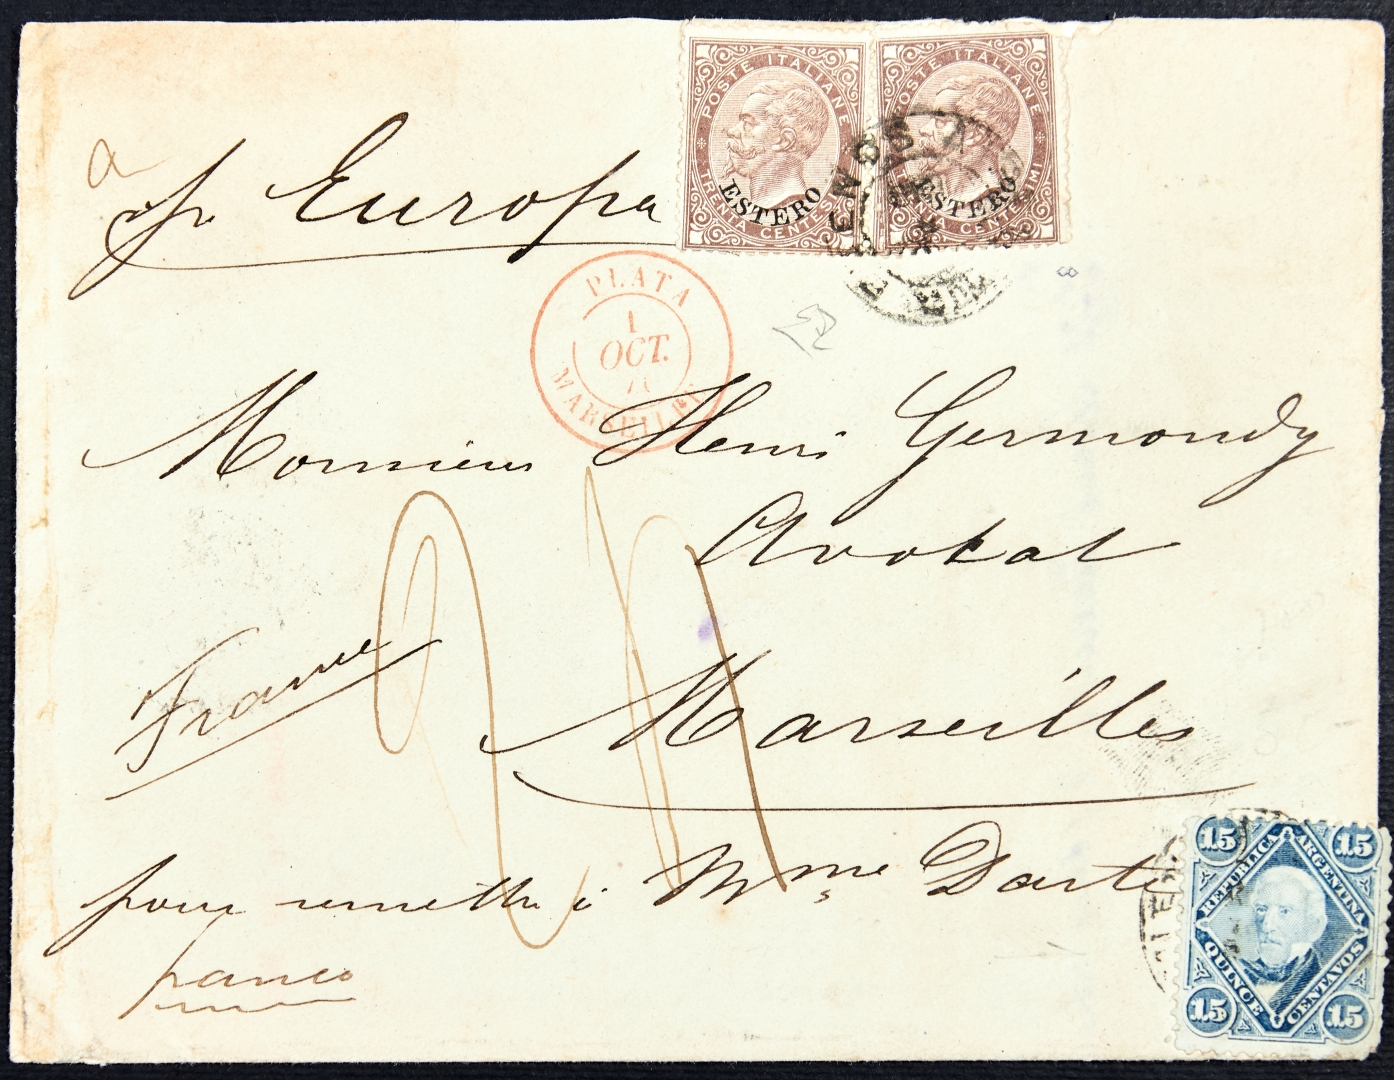 a
pr Europa
POSTE ITALIANE
TRENTA CENTESIMI
ESTERO
POSTE ITALIANE
TRENTA CENTESIMI
ESTERO
PLATA
1
OCT.
MARSEILLE
8
Monsieur Henri Germondy
Avokat
France
Marseilles
pour remettre à Mme Darte
franco
15 15
REPUBLICA ARGENTINA
QUINCE CENTAVOS
15 15